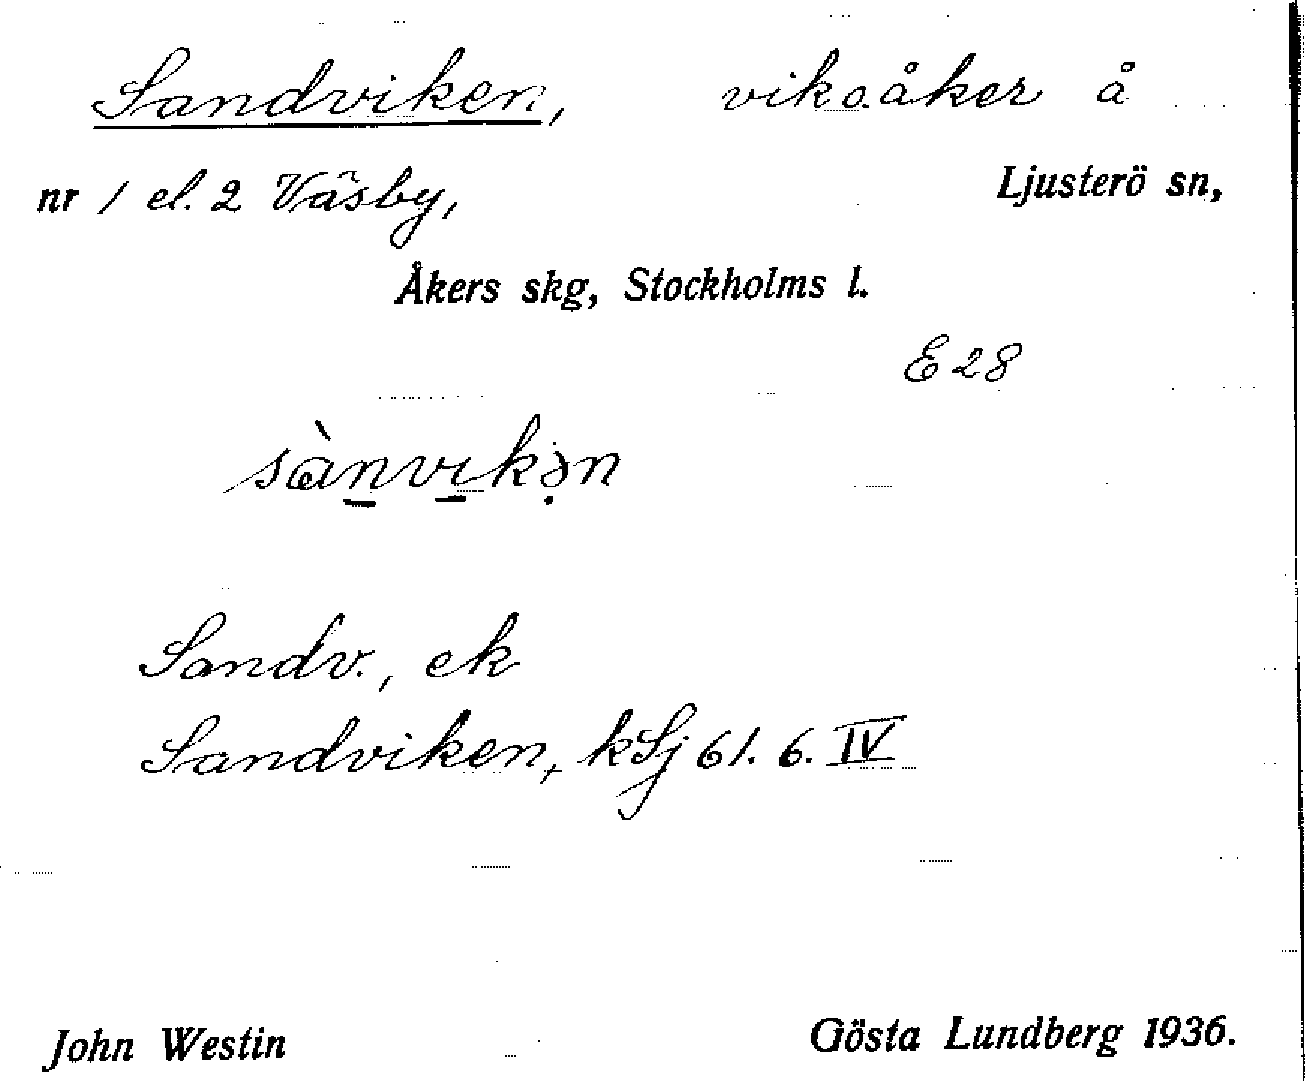 Sandviken, vik o. åker å
nr 1 el. 2 Väsby, Ljusterö sn,
Åkers skg, Stockholms l.
E 28
sànvikən
Sandv., ek
Sandviken, kSj 61. 6. IV
John Westin Gösta Lundberg 1936.